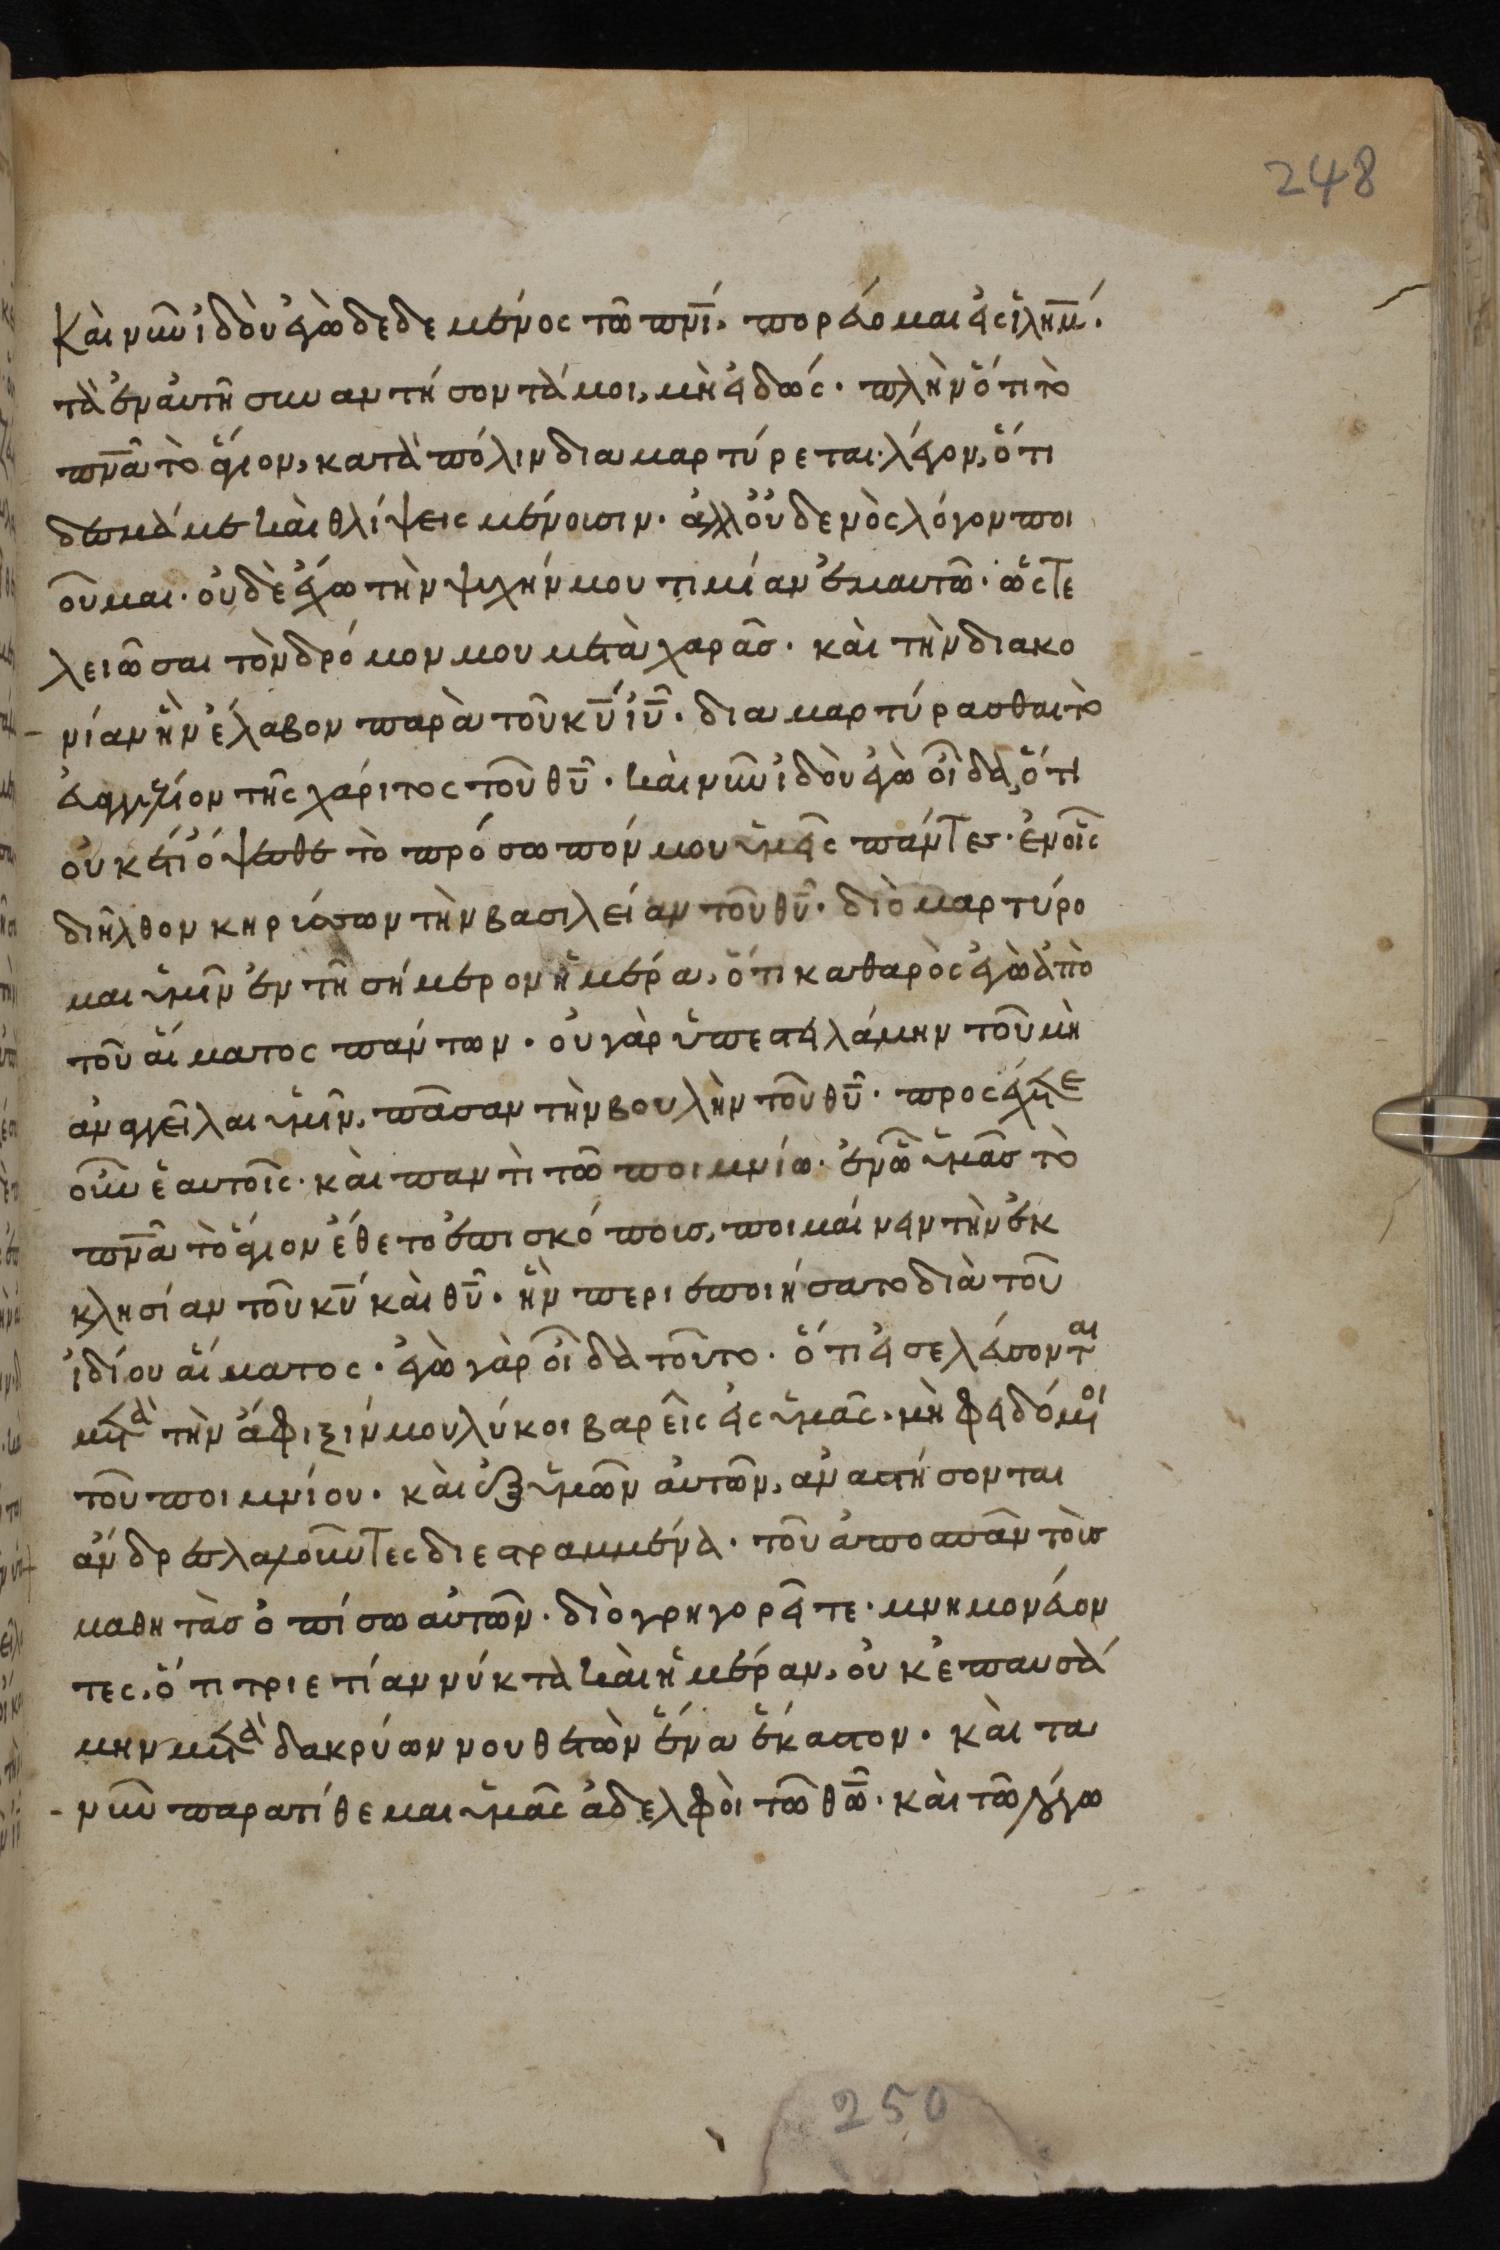 248
Καὶ νῦν ἰδοὺ ἐγὼ δεδεμένος τῶ πνι, πορεύομαι εἰς ἰλημ.
τὰ ἐν αὐτῆ συναντήσοντά μοι, μὴ εἰδώς. πλὴν ὅτι τὸ
πνα τὸ ἅγιον, κατὰ πόλιν διαμαρτύρεται λέγον, ὅτι
δεσμά με καὶ θλίψεις μένουσιν. ἀλλ οὐδενὸς λόγον ποι
οῦμαι. οὐδὲ ἔχω τὴν ψυχήν μου τιμίαν ἐμαυτῶ. ὡς τε
λειῶσαι τὸν δρόμον μου μετὰ χαρᾶσ. καὶ τὴν διακο
νίαν ἣν ἔλαβον παρὰ τοῦ κυ ἰυ. διαμαρτύρασθαι τὸ
εὐαγγέλιον τῆς χάριτος τοῦ θυ. καὶ νῦν ἰδοὺ ἐγὼ οἶδα, ὅτι
οὐκέτι ὄψεσθε τὸ πρόσωπόν μου ὑμεῖς πάντεσ. ἐν οἷς
διῆλθον κηρύσσων τὴν βασιλείαν τοῦ θυ. διὸ μαρτύρο
μαι ὑμῖν ἐν τῆ σήμερον ἡμέρα, ὅτι καθαρὸς ἐγὼ ἀπὸ
τοῦ αἵματος πάντων. οὐ γὰρ ὑπεστειλάμην τοῦ μὴ
ἀναγγεῖλαι ὑμῖν, πᾶσαν τὴν βουλὴν τοῦ θυ. προσέχετε
οὖν ἑαυτοῖς. καὶ παντὶ τῶ ποιμνίω. ἐν ὧ ὑμᾶσ τὸ
πνα τὸ ἅγιον ἔθετο ἐπισκόπουσ, ποιμαίνειν τὴν ἐκ
κλησίαν τοῦ κυ καὶ θυ. ἣν περιεποιήσατο διὰ τοῦ
ἰδίου αἵματος. ἐγὼ γὰρ οἶδα τοῦτο. ὅτι εἰσελεύσονται
μετὰ τὴν ἄφιξίν μου λύκοι βαρεῖς εἰς ὑμᾶς. μὴ φειδόμενοι
τοῦ ποιμνίου. καὶ ἐξ ὑμῶν αὐτῶν, ἀναστήσονται
ἄνδρεσ λαλοῦντες διεστραμμένα. τοῦ ἀποσπᾶν τοὺσ
μαθητὰσ ὀπίσω αὐτῶν. διὸ γρηγορεῖτε. μνημονεύον
τες, ὅτι τριετίαν νύκτα καὶ ἡμέραν, οὐκ ἐπαυσά
μην μετὰ δακρύων νουθετῶν ἕνα ἕκαστον. καὶ τα
νῦν παρατίθεμαι ὑμᾶς ἀδελφοὶ τῶ θω. καὶ τῶ λόγω
250